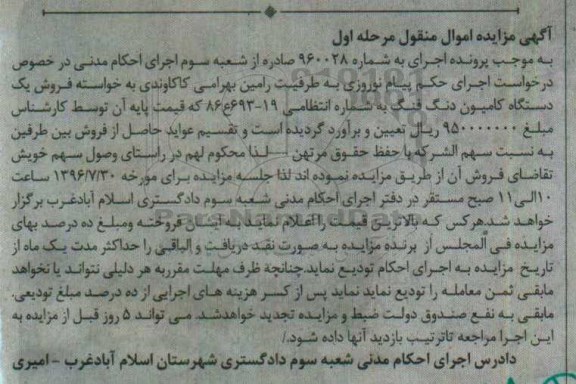 آگهی مزایده اموال منقول مرحله اول
به موجب پرونده اجرای به شماره ۹۶۰۰۲۸ صادره از شعبه سوم اجرای احکام مدنی در خصوص
درخواست اجرای حکم پیام نوروزی به طرفیت رامین بهرامی کاکاوندی به خواسته فروش یک
دستگاه کامیون دنگ فنگ به شماره انتظامی ۱۹-۶۹۳ع۸۶ که قیمت پایه آن توسط کارشناس
مبلغ ۹۵۰۰۰۰۰۰۰ ریال تعیین و برآورد گردیده است و تقسیم عواید حاصل از فروش بین طرفین
به نسبت سهم الشرکه با حفظ حقوق مرتهن لذا محکوم لهم در راستای وصول سهم خویش
تقاضای فروش آن از طریق مزایده نموده اند لذا جلسه مزایده برای مورخه ۱۳۹۶/۷/۳۰ ساعت
۱۰الی۱۱ صبح مستقر در دفتر اجرای احکام مدنی شعبه سوم دادگستری اسلام آبادغرب برگزار
خواهد شد.هرکس که بالاترین قیمت را اعلام نماید به ایشان فروخته ومبلغ ده درصد بهای
مزایده فی المجلس از برنده مزایده به صورت نقد دریافت و الباقی را حداکثر مدت یک ماه از
تاریخ مزایده به اجرای احکام تودیع نماید.چنانچه ظرف مهلت مقرربه هر دلیلی نتواند یا نخواهد
مابقی ثمن معامله را تودیع نماید نماید پس از کسر هزینه های اجرایی از ده درصد مبلغ تودیعی.
مابقی به نفع صندوق دولت ضبط و مزایده تجدید خواهدشد. می تواند ۵ روز قبل از مزایده به
این اجرا مراجعه تاترتیب بازدید آنها داده شود./
دادرس اجرای احکام مدنی شعبه سوم دادگستری شهرستان اسلام آبادغرب - امیری